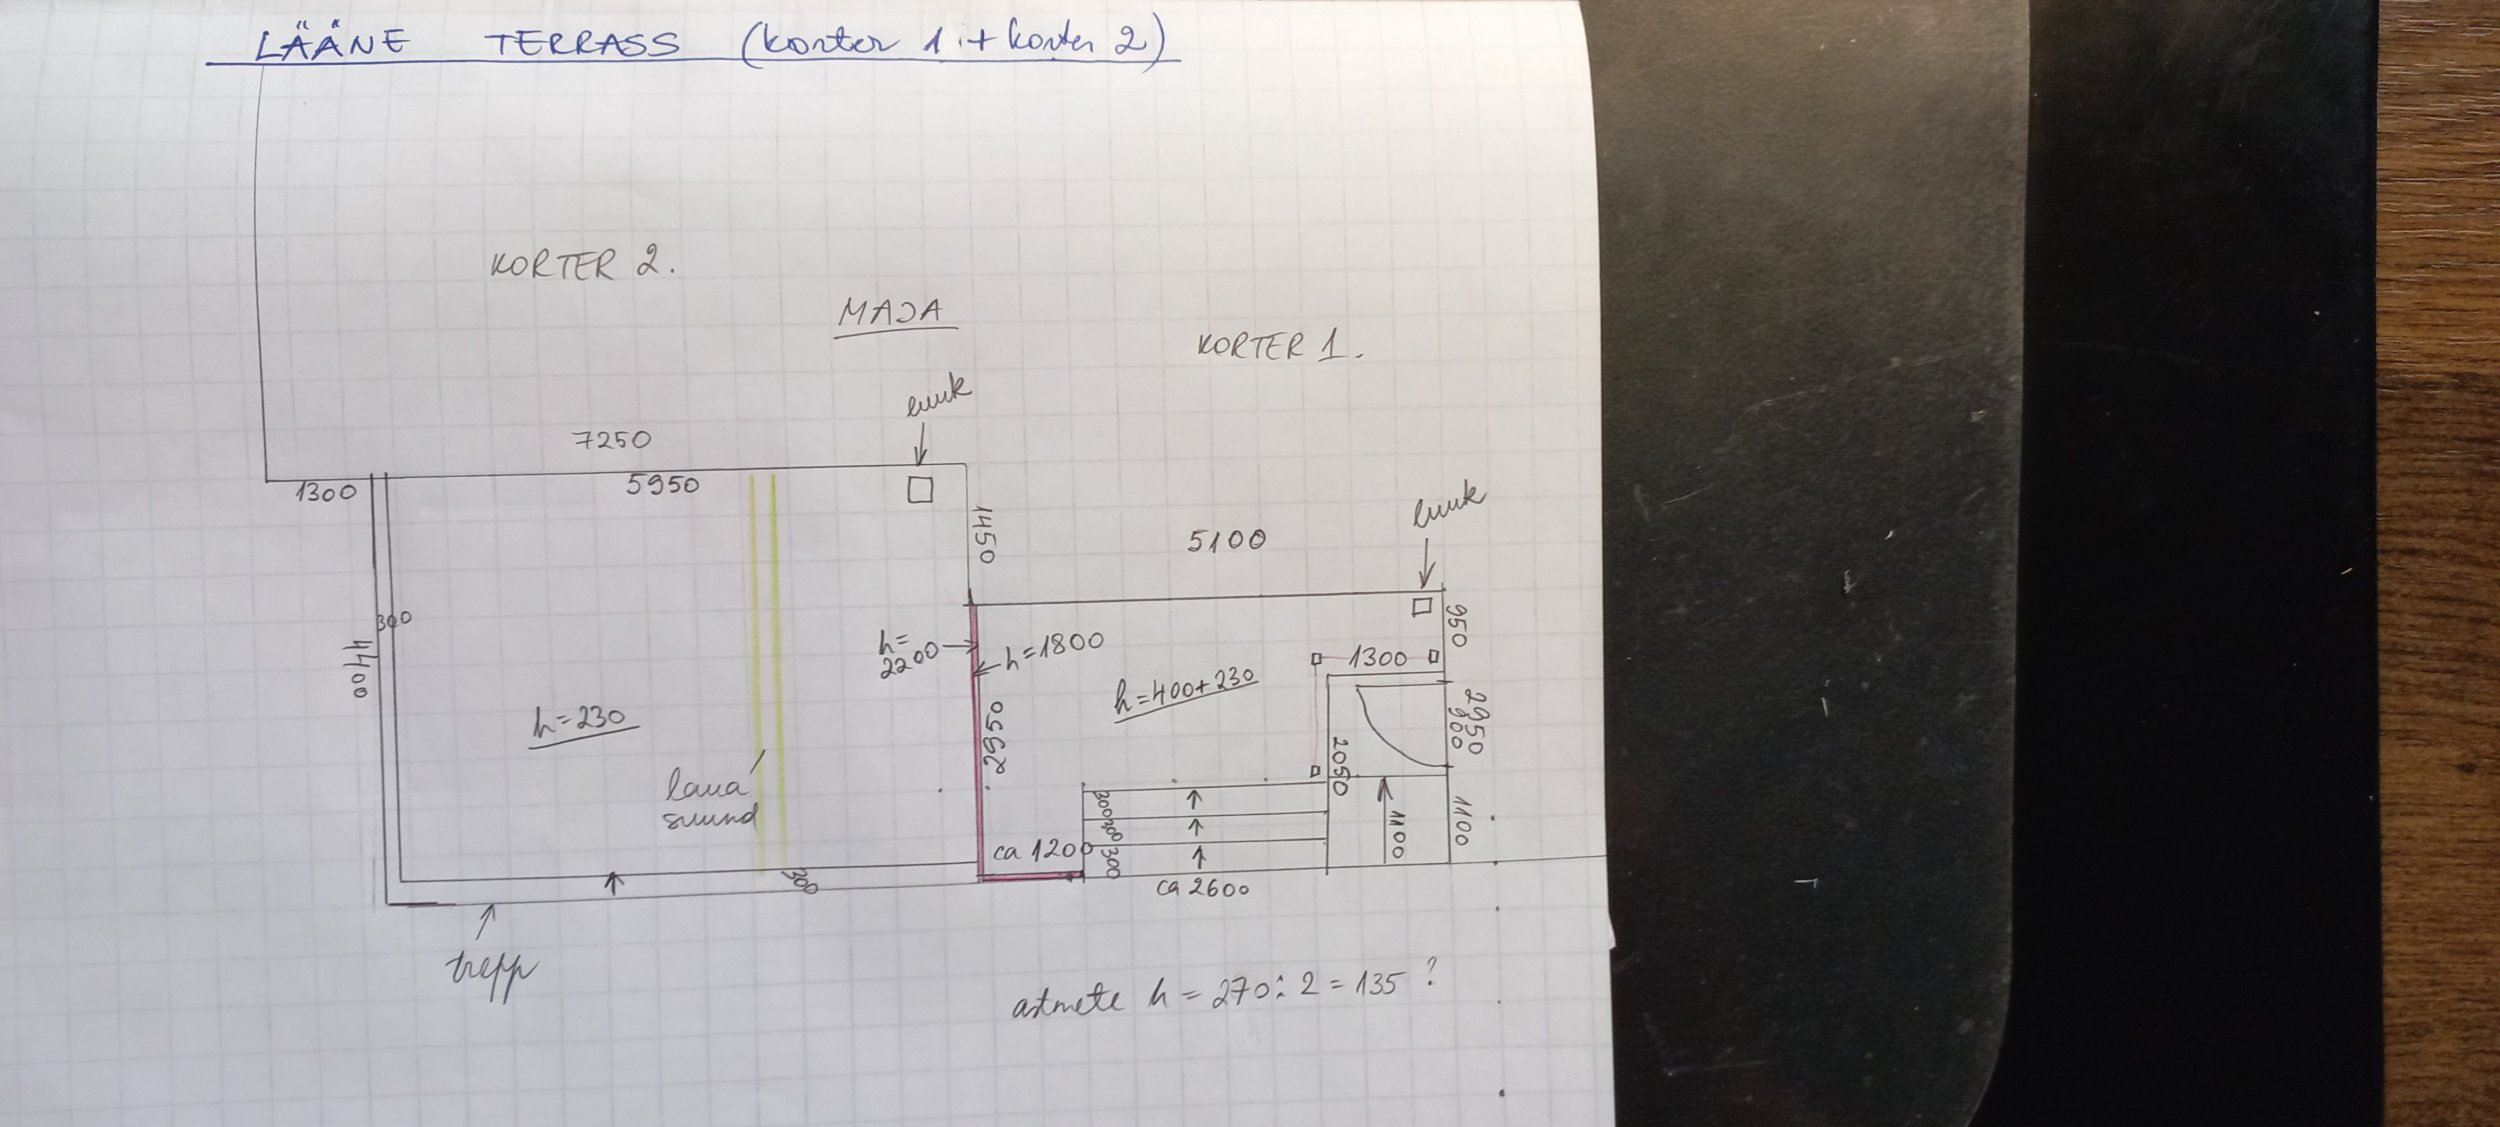 LÄÄNE TERRASS (korter 1 + korter 2)
KORTER 2.
MAJA
KORTER 1.
luuk
7250
1300
5950
1450
luuk
5100
950
300
4400
h=
2200
h=1800
1300
h=400+230
2950
900
h=230
2950
2050
laua
suund
300
300
300
1100
1100
ca 1200
ca 2600
300
trepp
astmete h = 270:2 = 135 ?